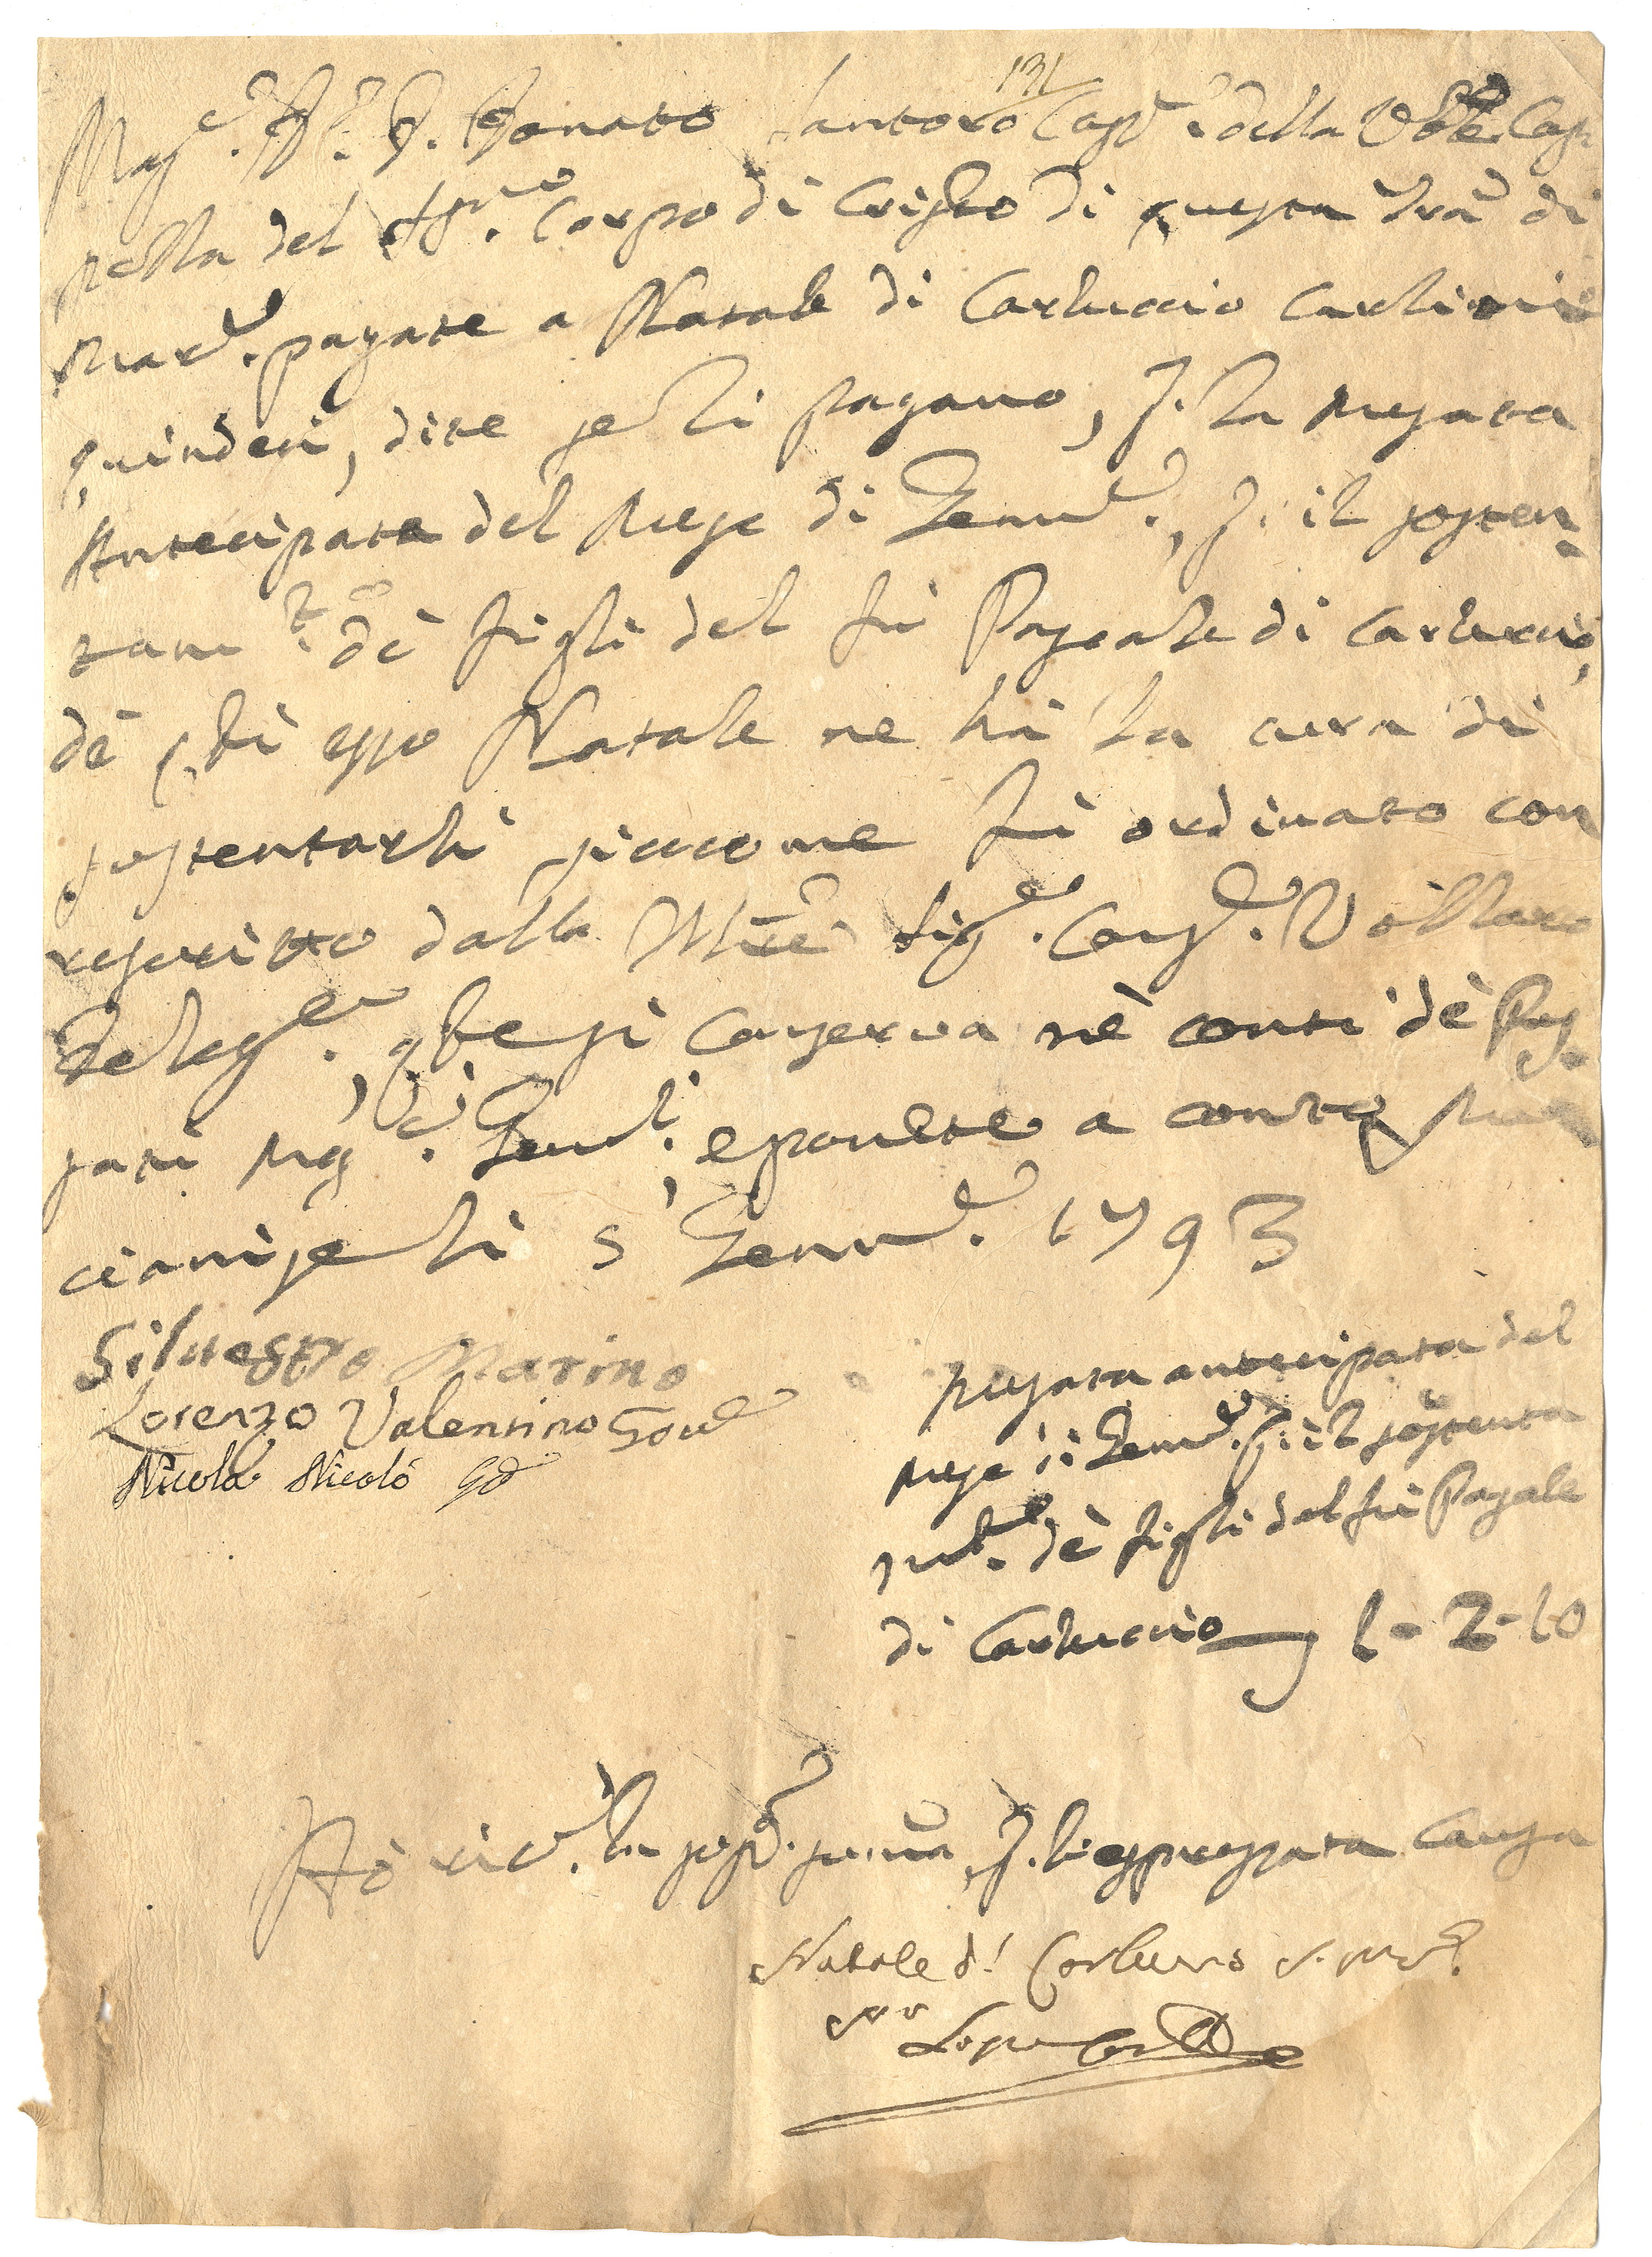 131
Mag.co D. Donato Santoro Cass.e della Ven.e Cap
pella del SS.mo Corpo di Cristo di questa Trã di
Mar.o pagate a Natale di Carluccio Carlini
quindeci, dite se li pagano, p. la mesata
Antecipata del mese di Genn.o, p. il sosten-
tam.to dè figli del fù Pascale di Carluccio,
dè q.li esso Natale ne hà la cura di
sostentarli siccome fù ordinato con
rescritto dalla Sig.e Cons.e Vollaro
Deleg.to, che si conserva nè conti dè Pas-
sati Mg.ci Gov.i, e ponete a conto
li 5 Genn.o 1793
Silvestro Marino
Lorenzo Valentino Gov.e
Nicola Nicolò Gv
mesata antecipata del
mese di Genn.o p. il sostenta
m.to dè figli del fù Pascale
di Carluccio 1-2-10
Hò ric.o la sop.a summa p. l'espressata causa
Natale di Carluccio